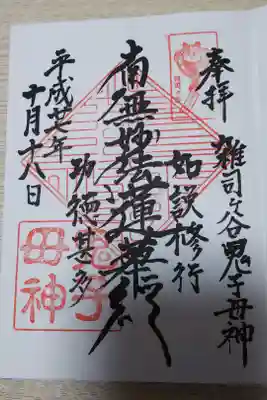 奉拝
雑司ヶ谷鬼子母神
如説修行
南無妙法蓮華経
功徳甚多
平成廿七年
十月十八日
鬼子
母神